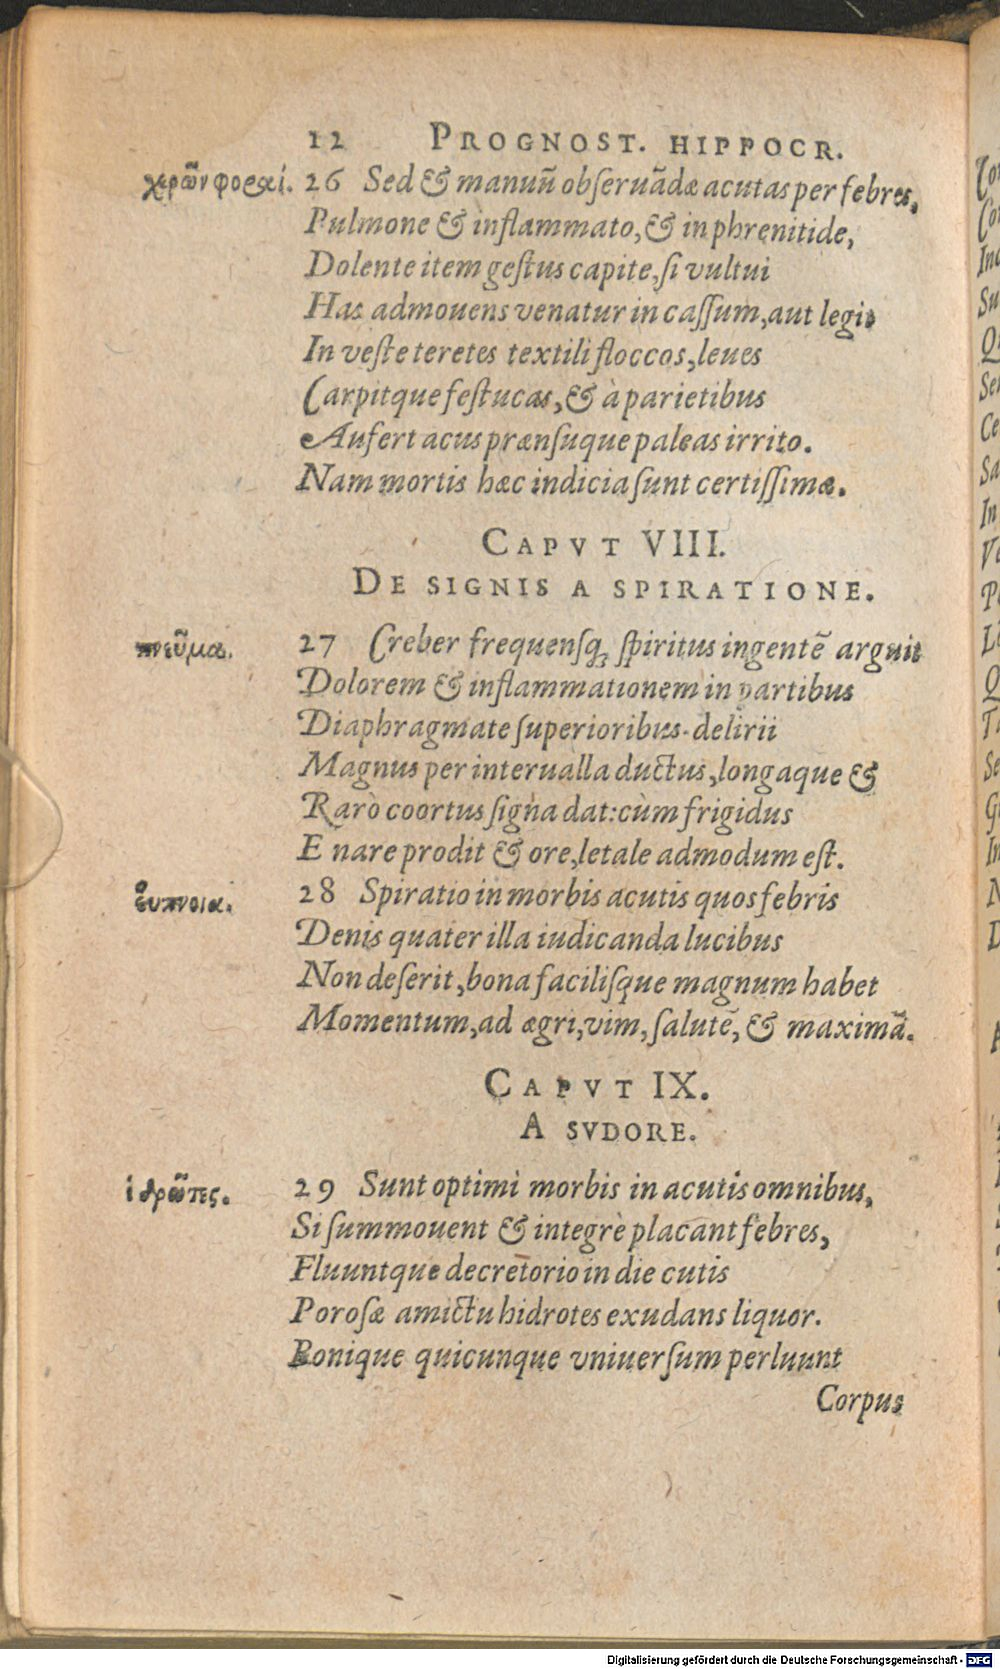 12 PROGNOST. HIPPOCR.
χερῶν φοραί. 26 Sed & manuũ obſeruãdæ acutas per febres,
Pulmone & inflammato, & in phrenitide,
Dolente item geſtus capite, ſi vultui
Has admouens venatur in caſſum, aut legit
In veſte teretes textili floccos, leues
Carpitque feſtucas, & à parietibus
Aufert acus prænſuque paleas irrito.
Nam mortis hæc indicia ſunt certiſſimæ.
CAPVT VIII.
DE SIGNIS A SPIRATIONE.
πνεῦμα. 27 Creber frequenſq; ſpiritus ingentẽ arguit
Dolorem & inflammationem in partibus
Diaphragmate ſuperioribus. delirii
Magnus per interualla ductus, longaque &
Rarò coortus ſigna dat: cùm frigidus
E nare prodit & ore, letale admodum eſt.
εὔπνοια. 28 Spiratio in morbis acutis quos febris
Denis quater illa iudicanda lucibus
Non deſerit, bona faciliſque magnum habet
Momentum, ad ægri, vim, ſalutẽ, & maximã.
CAPVT IX.
A SVDORE.
ἱδρῶτες. 29 Sunt optimi morbis in acutis omnibus,
Si ſummouent & integrè placant febres,
Fluuntque decretorio in die cutis
Poroſæ amictu hidrotes exudans liquor.
Bonique quicunque vniuerſum perluunt
Corpus
Digitalisierung gefördert durch die Deutsche Forschungsgemeinschaft - DFG